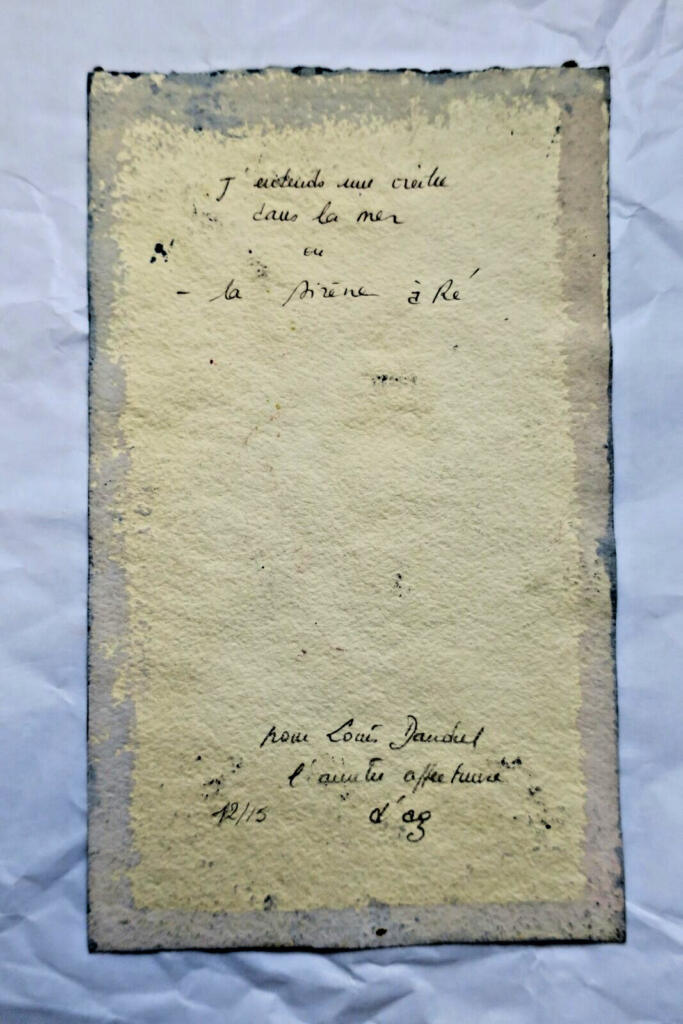 J'entends une oreille
dans la mer
ou
- la sirène à Ré
pour Louis Dandrel
l'amitié affectueuse
12/15 d'ag